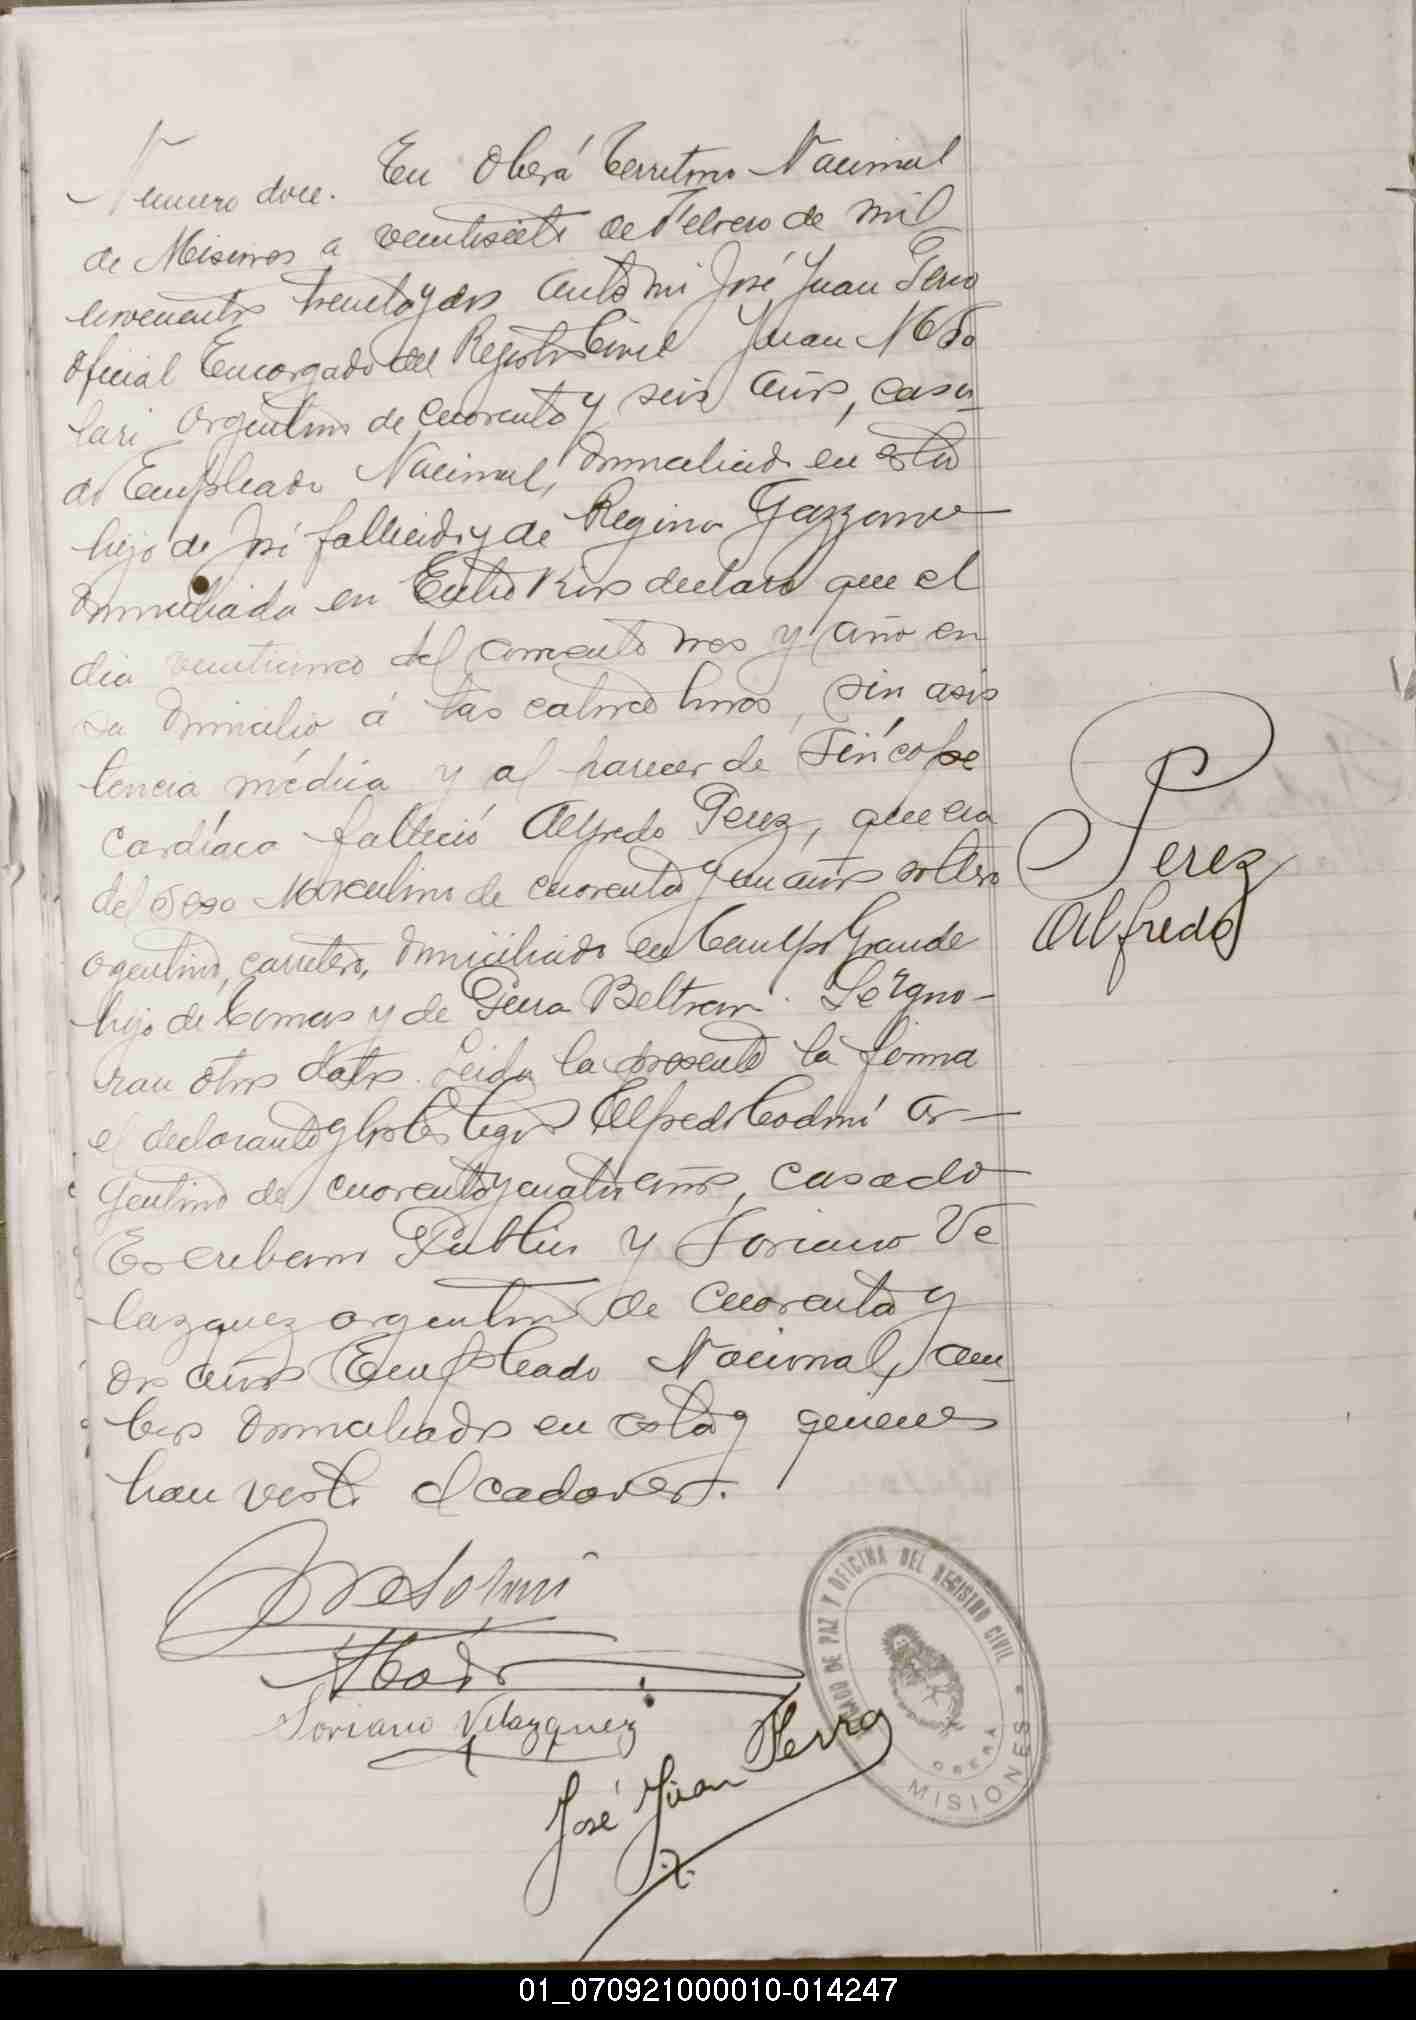 Numero doce. En Oberá Territorio Nacional
de Misiones a veintisiete de Febrero de mil
novecientos treinta y dos ante mi José Juan Ferro
oficial Encargado del Registro Civil Juan M So
lari, argentino de cuarenta y seis años, casa-
do Empleado Nacional, domiciliado en esta
hijo de José fallecido y de Regina Gazzano
domiciliada en Entre Rios declaro que el
dia veinticinco del corriente mes y año en
su domicilio á las catorce horas, sin asis
tencia médica y al parecer de Síncope
cardíaco falleció Alfredo Perez, que era
del sexo Masculino de cuarenta y un años soltero
argentino, carretero, domiciliado en Campo Grande
hijo de Tomas y de Petra Beltran. Se igno-
ran otros datos. Leida la presente la firma
el declarante y los testigos Alfredo Codoni ar-
gentino de cuarenta y cuatro años, casado
Escribano Publico y Soriano Ve
lazquez argentino de cuarenta y
dos años Empleado Nacional, am-
bos domiciliados en esta y quienes
han visto el cadaver.
Perez
Alfredo
Soriano Velazquez
José Juan Ferro
JUZGADO DE PAZ Y OFICINA DEL REGISTRO CIVIL
OBERA
MISIONES
01_070921000010-014247